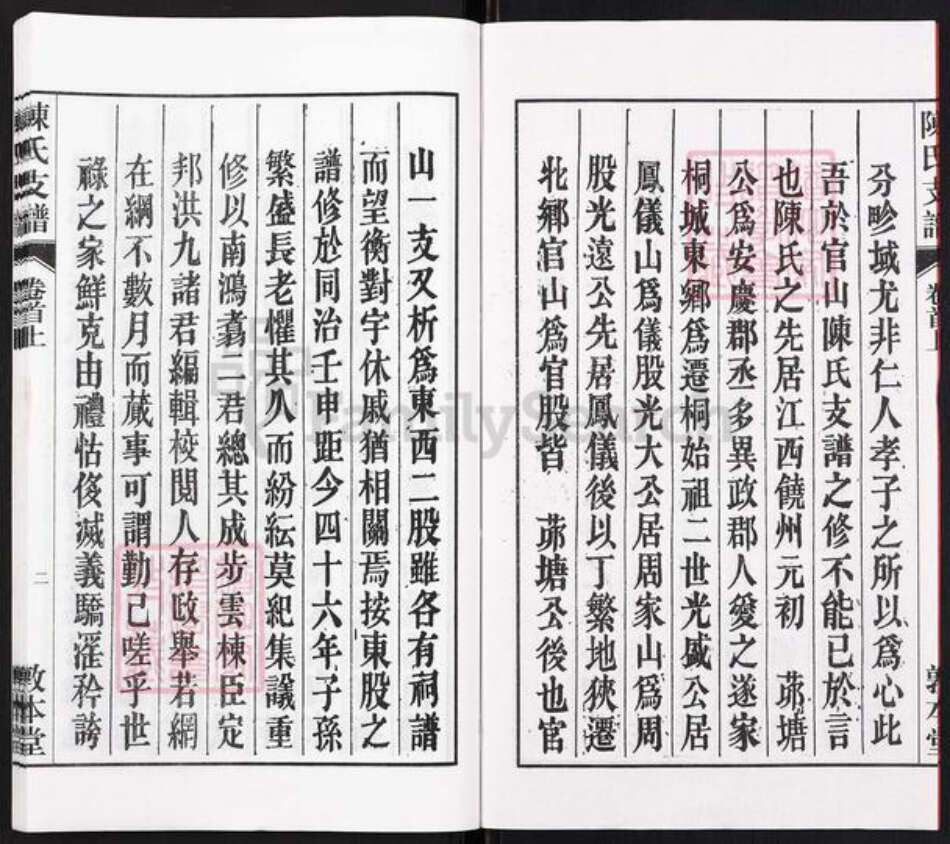 陳氏支譜 卷首上 敦本堂
分畛域尤非仁人孝子之所以爲心此
吾於官山陳氏支譜之修不能已於言
也陳氏之先居江西饒州元初 茆塘
公爲安慶郡丞多異政郡人愛之遂家
桐城東鄉爲遷桐始祖二世光盛公居
鳳儀山爲儀股光大公居周家山爲周
股光遠公先居鳳儀後以丁繁地狹遷
北鄉官山爲官股皆 茆塘公後也官
山一支又析爲東西二股雖各有祠譜
而望衡對宇休戚猶相關焉按東股之
譜修於同治壬申距今四十六年子孫
繁盛長老懼其久而紛紜莫紀集議重
修以南鴻翥二君總其成步雲棟臣定
邦洪九諸君編輯校閱人存政舉若網
在綱不數月而蕆事可謂勤已嗟乎世
祿之家鮮克由禮怙侈滅義驕淫矜誇
陳氏支譜 卷首上 二 敦本堂
FamilySearch